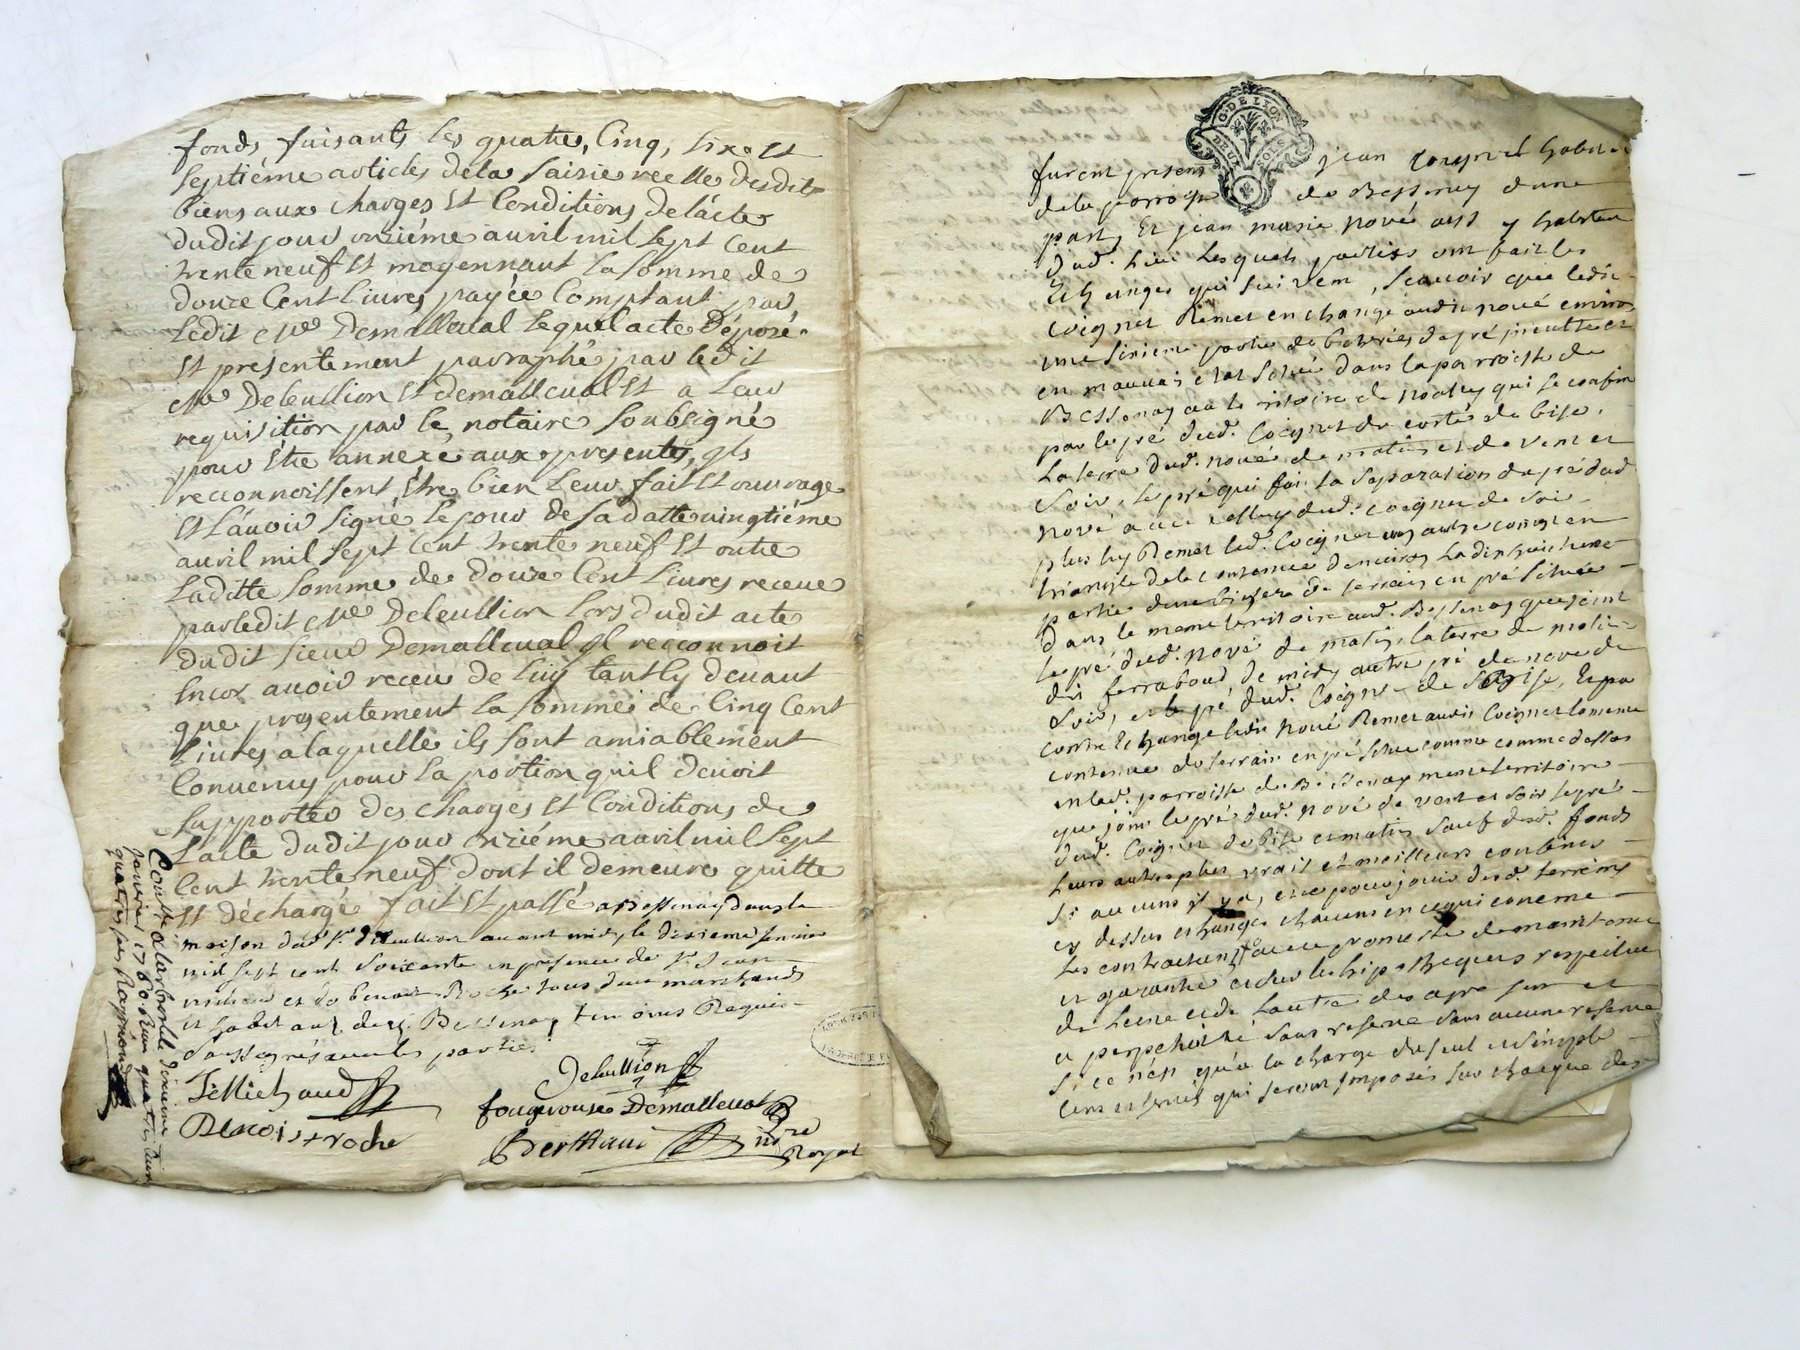 fonds faisants les quatre, Cinq, Six et
Septiéme articles dela Saisie reelle desdits
biens aux charges et Conditions de l'acte
dudit jour onziéme avril mil Sept Cent
trente neuf et moyennant la Somme de
douze Cent Livres payée Comptant par
Ledit Demalleval lequel acte Déposé
et presentement paraphé par ledit
Deleullion et Demalleval et a leur
requisition par le notaire Soubsigné
pour être annexé aux presentes, ils
reconnoissent être bien leur fait et ouvrage
et L'avoir signé le jour de sa datte vingtiéme
avril mil Sept Cent trente neuf et outre
Laditte Somme de douze Cent Livres receue
par ledit Deleullion lors dudit acte
dudit Sieur Demalleval il reconnoit
Encor avoir receu de luy tant Cy devant
que presentement la Somme de Cinq Cent
Livres a laquelle ils Sont amiablement
Convenus pour la portion qu'il devoit
Supporter des charges et Conditions de
L'acte dudit jour onziéme avril mil Sept
Cent trente neuf dont il demeure quitte
et déchargé fait et passé a Bessenay dans la
maison dud. Sr. Deleullion avant midy le dixieme janvier
mil sept cent Soixante en presence de Sr. Jean
et de benoit Roche tous deux marchands
et habitants de Bessenay temoins Requis
Soussignés avec les parties
Deleullion
J. Michaud
fougerouse Demalleval
Benoist roche
Berthaud nore
Royal
Conllé a larbresle le dixieme
janvier 1760. Reçu quatre livres
quatre sols Raymond
G. DE LION
DEUX SOLS
furent presens jean Coignet habitant
dela parroisse de Bessenay dune
part, Et jean marie nové aussy habitant
dud. Lieu Lesquels parties ont fait les
Echanges qui Suivent, Scavoir que ledit
Coignet Remet en change audit nové environ
une Sixieme partie de bicherée de pré
en mauvais etat Situé dans la parroisse de
Bessenay au territoire de qui se confine
par le pré dud. Coignet du coté de bise,
La terre dud. nové de matin et de vent et
Soir, le pré qui fait la Separation du pré dud.
nové avec celluy dud. Coignet de Soir
plus luy Remet led. Coignet un autre coing en
triangle de la contenue denviron la dixhuitieme
partie dune bicheree de terrain en pré Situé
dans le meme territoire aud. Bessenay que joint
le pré dud. nové de matin, la terre de
ferraboud de midy autre pré de nové de
Soir, et le pré dud. Coignet de bise, Et pa
contre Echange ledit nové Remet audit Coignet la meme
contenue de terrain en pré Situé comme comme dessus
en lad. parroisse de Bessenay meme territoire
que joint le pré dud. nové de vent et soir le pré
dud. Coignet de bise et matin Sauf desd. fonds
leurs autres plus vrais et meilleurs confins
Si aucuns il y a, et ce pour jouir desd. terreins
cy dessus echangés chacuns en ce qui concerne
les contractants avec promesse de maintenue
et garantie et Sur les hipotheques respective
de Lune et de Lautre des
et perpetuité Sans reserve Sans aucune reserve
Si ce nést qu'a la charge du seul et Simple
Cens et servis qui seront imposés Sur chacque des